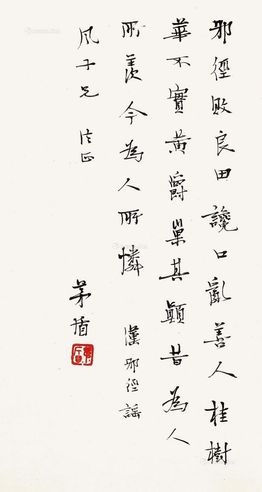 邪徑敗良田讒口亂善人桂樹
華不實黃爵巢其顛昔為人
所羨今為人所憐 漢邪徑謠
凤子兄 法正
茅盾